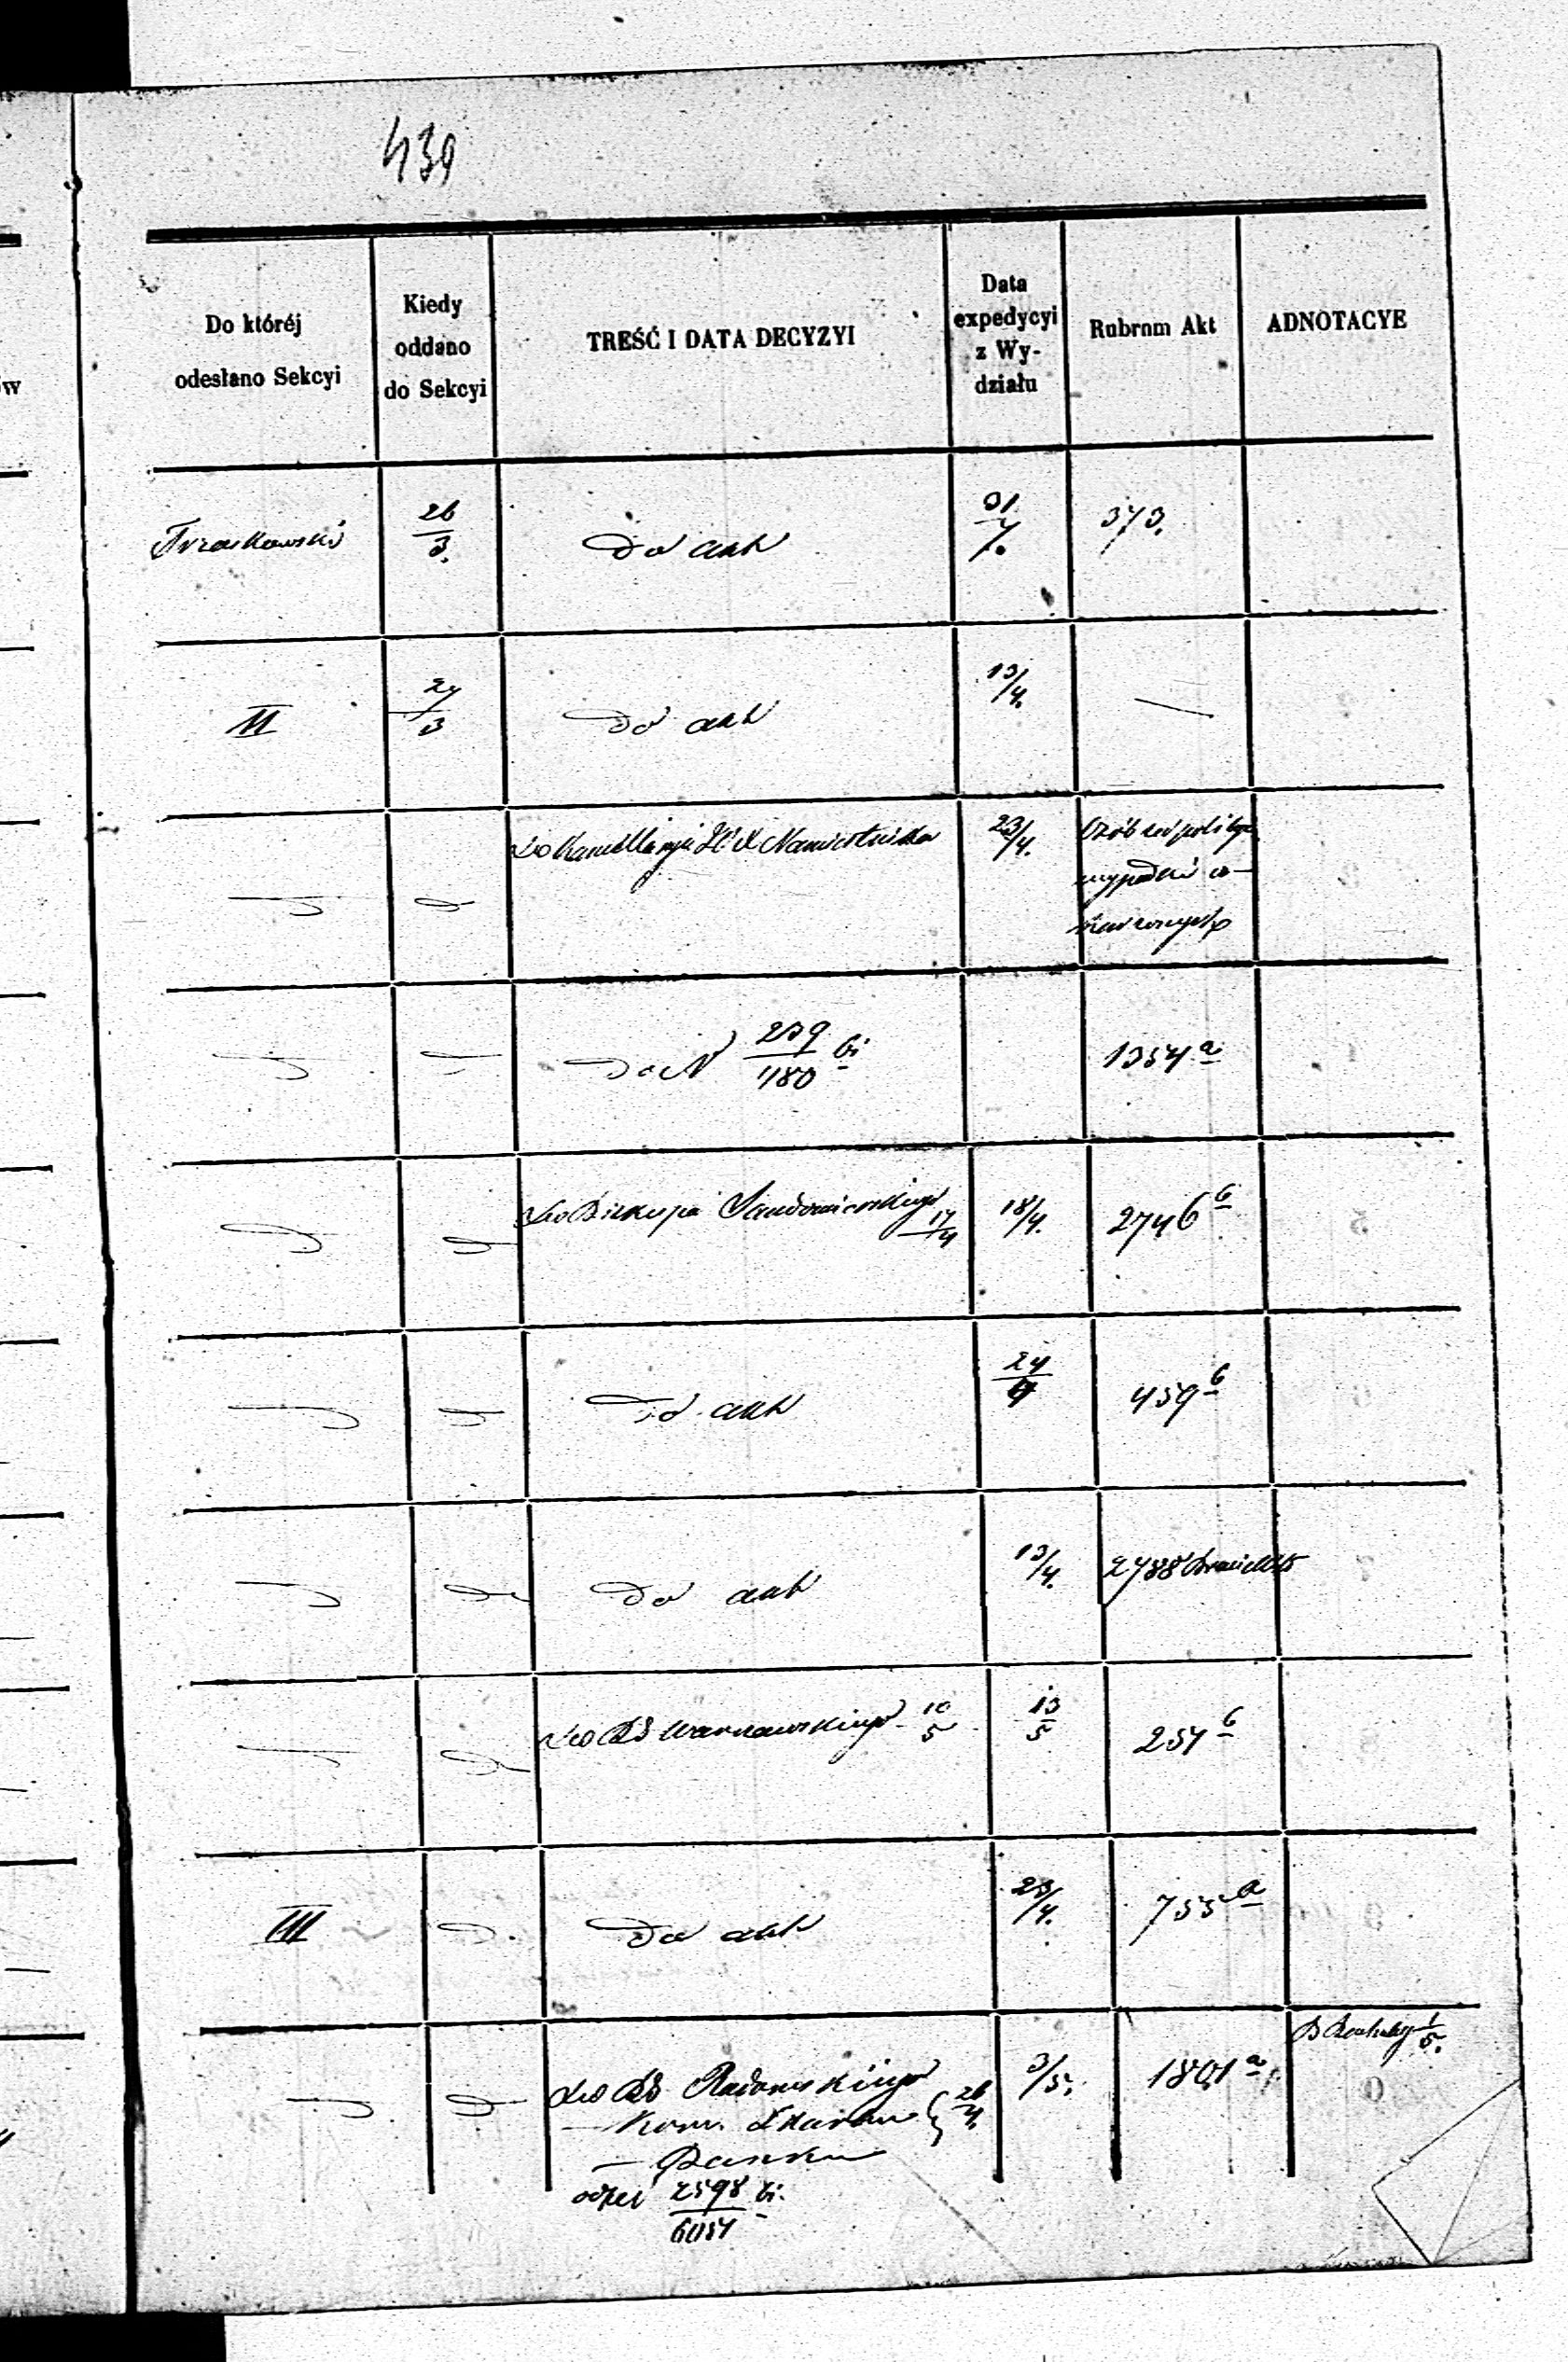 439
Do któréj
odesłano Sekcyi
Kiedy
oddano
do Sekcyi
TREŚĆ I DATA DECYZYI
Data
expedycyi
z Wy-
działu
Rubrum Akt
ADNOTACYE
Trzaskowski
26
3.
Do akt
373.
II
27
3
Do akt
13/4.
—
Do Kancellaryi JCK Namiestnika
23/4.
Osób w polity
wypadki
Do N 239/1180 bi
1354 a
Do Biskupa Sandomierskiego
17/4
18/4.
2746 b
Do akt
24
4
459 b
Do akt
13/4.
2788
Do RG Warszawskiego 10/5
13
5
254 b
III
Do akt
23/4.
755 a
Do RG Radomskiego
— Kom. Skarbu } 26/4
— Banku
odpis 2598 bi.
6054
3/5.
1801 a
1/5.